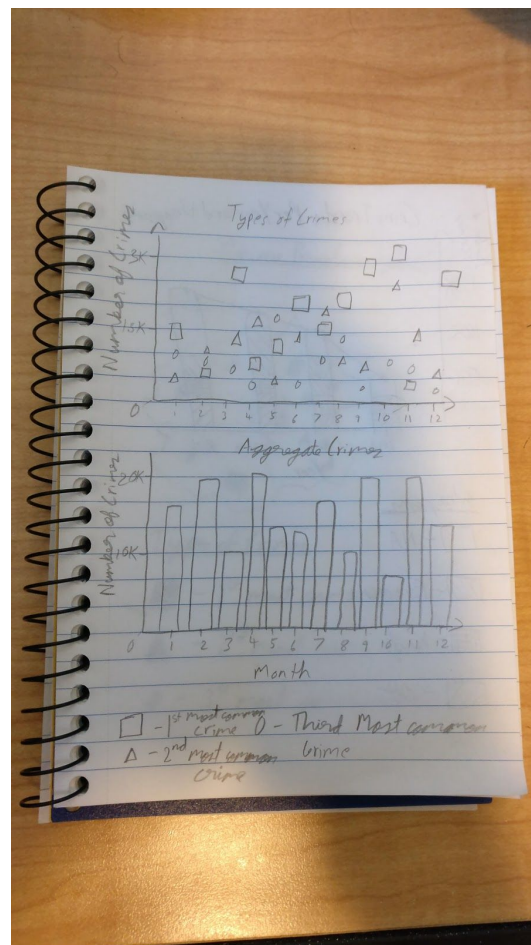 Types of Crimes
Number of Crimes
3K
1.5K
0
1 2 3 4 5 6 7 8 9 10 11 12
Aggregate Crimes
Number of Crimes
20K
10K
0
1 2 3 4 5 6 7 8 9 10 11 12
Month
□ - 1st most common crime O - Third Most common Crime
△ - 2nd most common crime